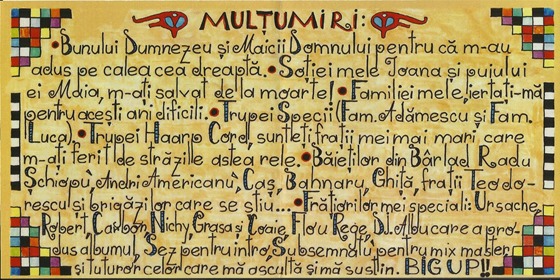 MULȚUMIRI:
• Bunului Dumnezeu și Maicii Domnului pentru că m-au
adus pe calea cea dreaptă. • Soției mele Ioana și puiului
ei Maia, m-ați salvat de la moarte! • Familiei mele, iertați-mă
pentru acești ani dificili. • Trupei Specii (Fam. Adămescu și Fam.
Luca) • Trupei Haarp Cord, sunteți frații mei mai mari care
m-ați ferit de străzile astea rele. • Băieților din Bârlad Radu
Schiopu, Andrei Americanu, Caș, Bahnaru, Ghiță, frații Teodo-
rescu și brigăzilor care se știu... • Frățiorilor mei speciali: Ursache,
Robert, Carbon, Nichy, Grasa și Coaie, Flou Rege, DJ. Albu care a pro-
dus albumul, Sez pentru intro, Subsemnatu pentru mix master
și tuturor celor care mă ascultă și mă susțin. BIG UP!!